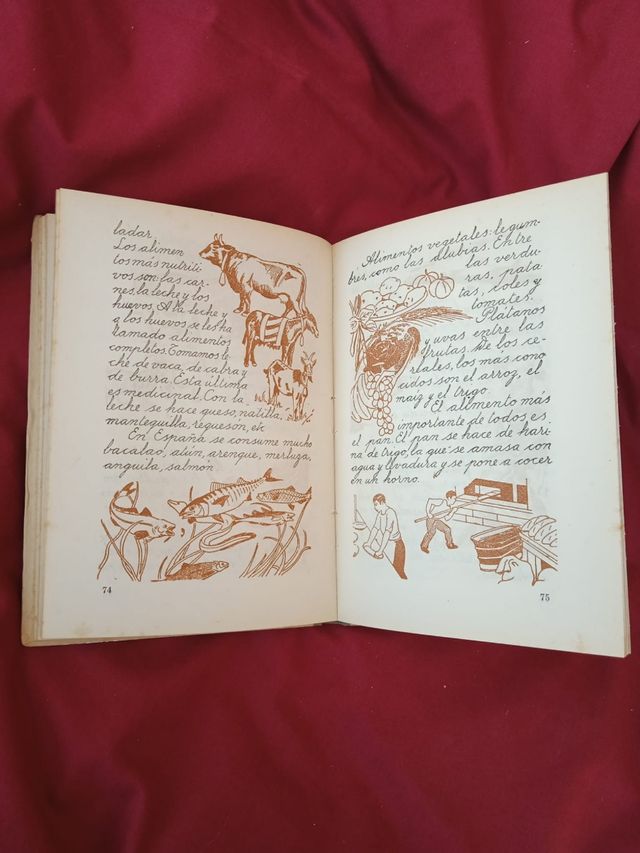 ladar.
Los alimen
tos más nutriti
vos son: las car-
nes, la leche y los
huevos. A la leche y
a los huevos se les ha
llamado alimentos
completos. Tomamos le
che de vaca, de cabra y
de burra. Esta última
es medicinal. Con la
leche se hace queso, natilla,
mantequilla, requesón, etc
En España se consume mucho
bacalao, atún, arenque, merluza,
anguila, salmón.
74
Alimentos vegetales: legum-
bres, como las alubias. Entre
las verdu-
ras, pata
tas, coles y
tomates.
Plátanos
y uvas entre las
frutas. De los ce-
reales, los más cono
cidos son el arroz, el
maiz y el trigo.
El alimento más
importante de todos es
el pan. El pan se hace de hari
na de trigo, la que se amasa con
agua y levadura y se pone a cocer
en un horno.
75